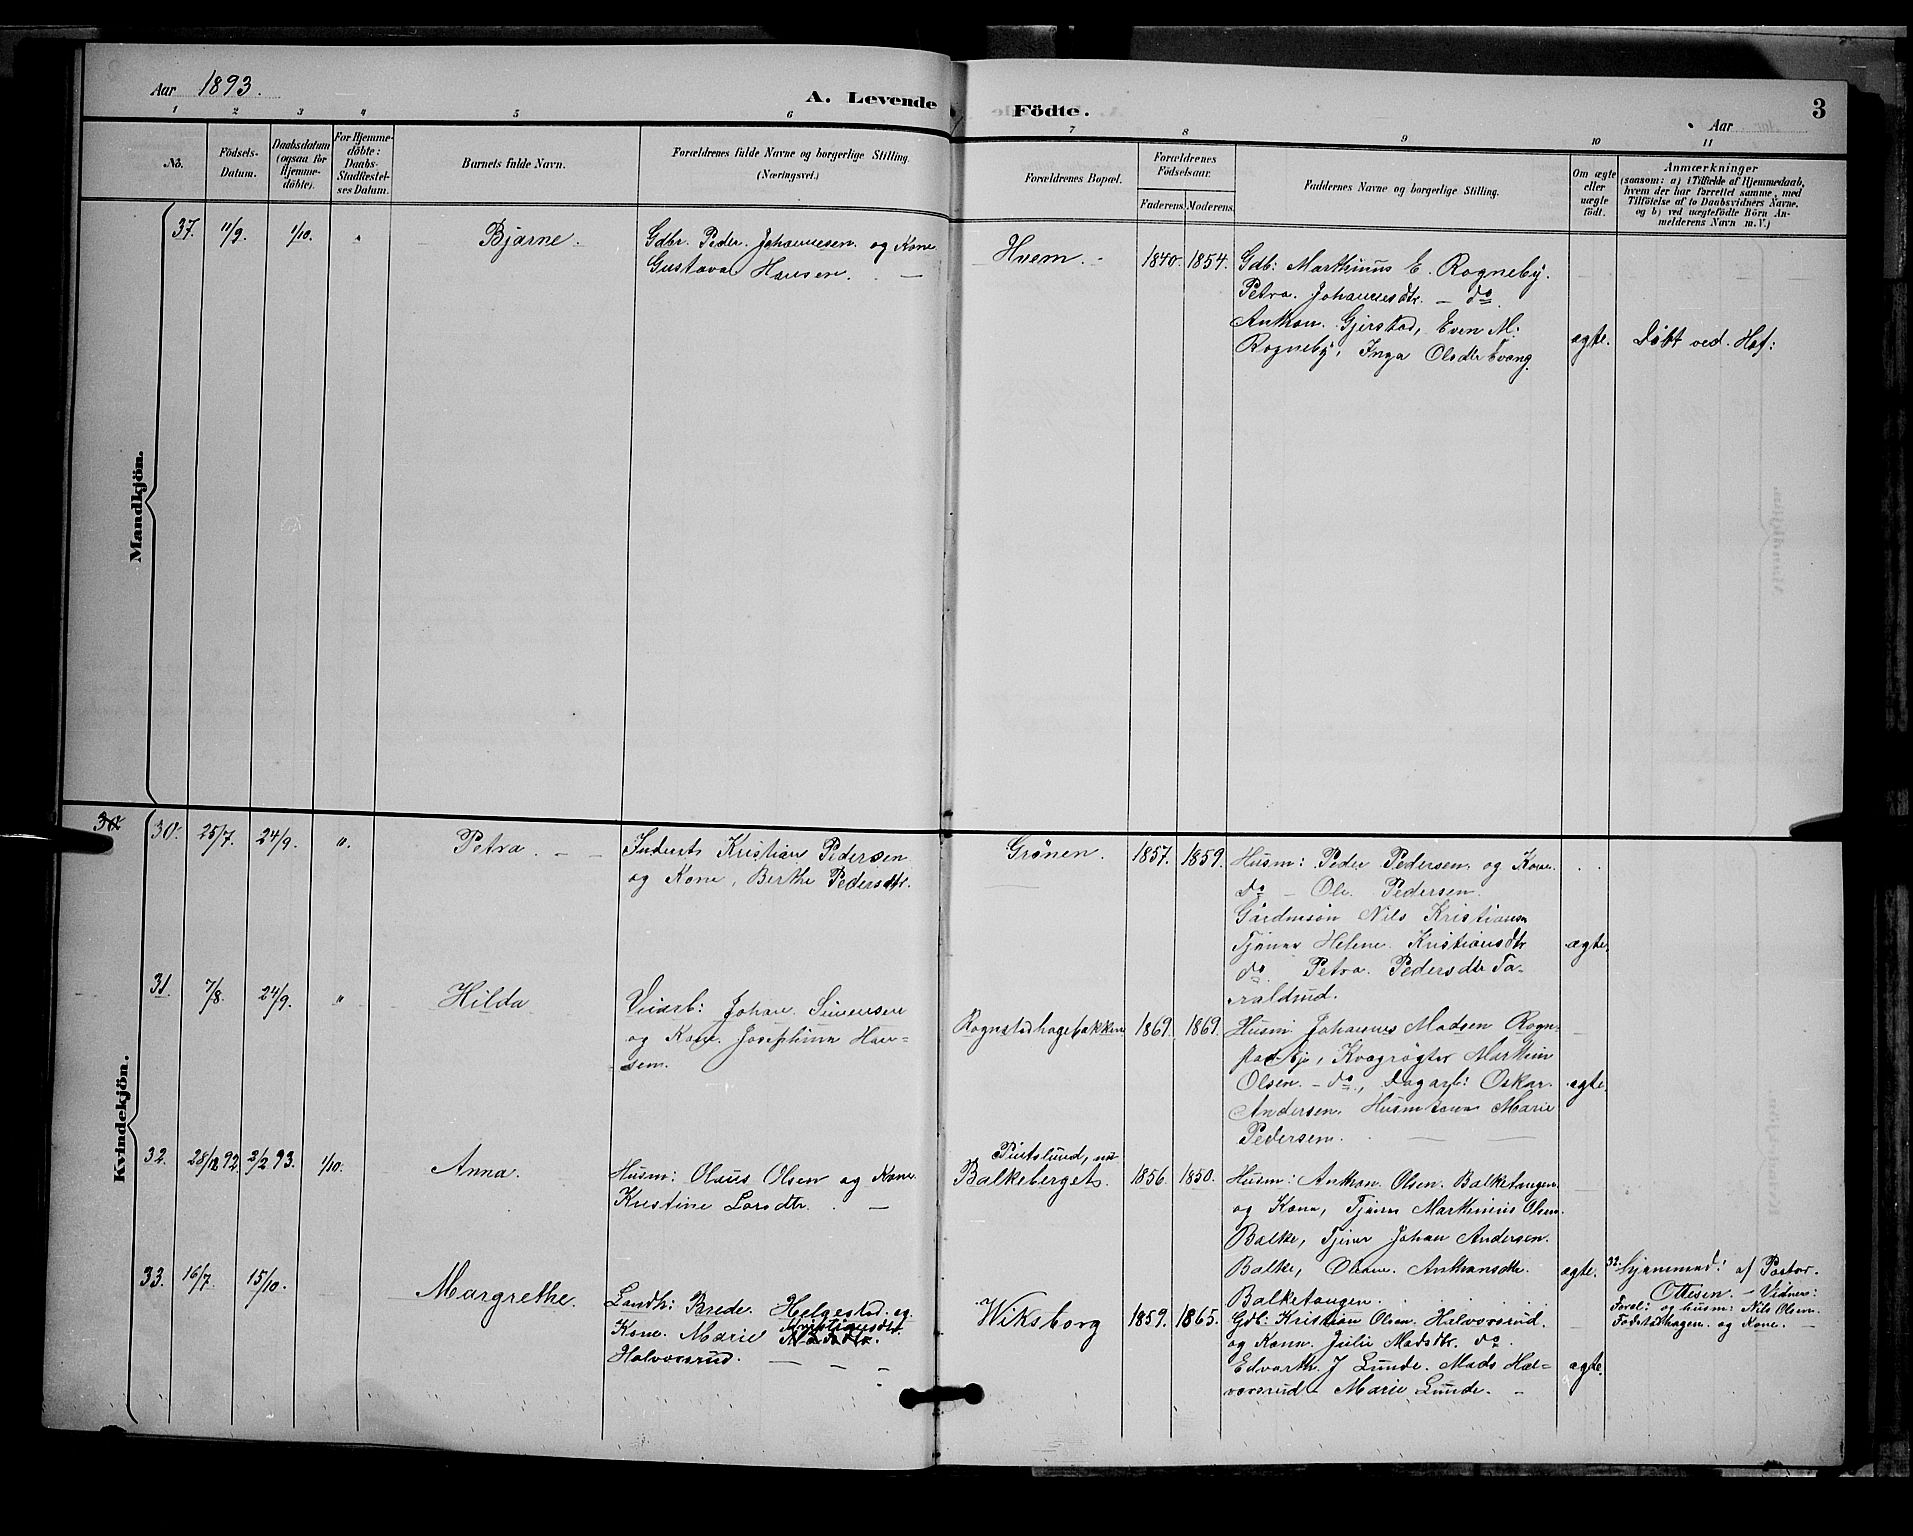 Aar 1893.
A. Levende Födte.
Aar
3
1 2 3 4 5 6 7 8 9 10 11
No.
Födsels-Datum.
Daabsdatum (ogsaa for Hjemmedöbte).
For Hjemmedöbte: Daabs-Stadfæstelses Datum.
Barnets fulde Navn.
Forældrenes fulde Navne og borgerlige Stilling. (Næringsvei.)
Forældrenes Bopæl.
Forældrenes Födselsaar.
Faderens. Moderens.
Faddernes Navne og borgerlige Stilling.
Om ægte eller uægte födt.
Anmærkninger
(saasom: a) i Tilfælde af Hjemmedaab,
hvem der har forrettet samme, med
Tilföielse af to Daabsvidners Navne.
og b) ved uægtefödte Börn An-
melderens Navn m. V.)
Mandkjön.
37. 11/9. 1/10. " Bjarne.
Gdbr. Peder Johannesen og Kone
Gustava Hansen. —
Hvem. 1840. 1854.
Gdb: Marthinus E. Rogneby.
Petra Johannesdtr. — do
Anthon Gjerstad, Even M.
Rogneby, Inga Olsdtr Evang.
ægte. Döbt ved Hof:
Kvindekjön.
30. 25/7. 24/9. ". Petra. —
Inderst Kristian Pedersen
og Kone, Berthe Pedersdtr.
Grönen. 1857. 1859.
Husm: Peder Pedersen og Kone.
do — Ole Pedersen.
Gårdmsön Nils Kristiansen
Tjener Helene Kristiansdtr
do Petra Pedersdtr Ta-
raldrud.
ægte.
31. 7/8. 24/9. " Hilda
Veiarb: Johan Simensen
og Kone Josephine Han-
sen.
Rognstadhagebakken 1869. 1869.
Husm Johannes Madsen Rogn-
stadeje, Kvægrögter Marthin
Olsen — do, Dagarb: Oskar
Andersen. Husmkone Marie
Pedersen. —
ægte.
32. 28/12 92. 2/2 93. 1/10. Anna.
Husm: Olaus Olsen og Kone
Kristine Larsdtr. —
Balkebergets. 1856. 1850.
Husm: Anthon Olsen Balketangen
og Kone, Tjener Marthinius Olsen
Balke, Tjener Johan Andersen
Balke, Oleane Anthonsdtr.
Balketangen.
ægte.
32. hjemmed: af Pastor
Ottesen. — Vidner:
Forel: og husm: Nils Olsen
Fodstadhagen og Kone. —
33. 16/7. 15/10. Margrethe.
Landh: Brede Helgestad og
Kone Marie Kristiansdtr.
Halvorsrud. —
Wiksborg 1859. 1865.
Gdb: Kristian Olsen Halvorsrud.
og Kone Julie Madsdtr. do
Edvarth J Lunde. Mads Hal-
vorsrud. Marie Lunde. —
ægte.